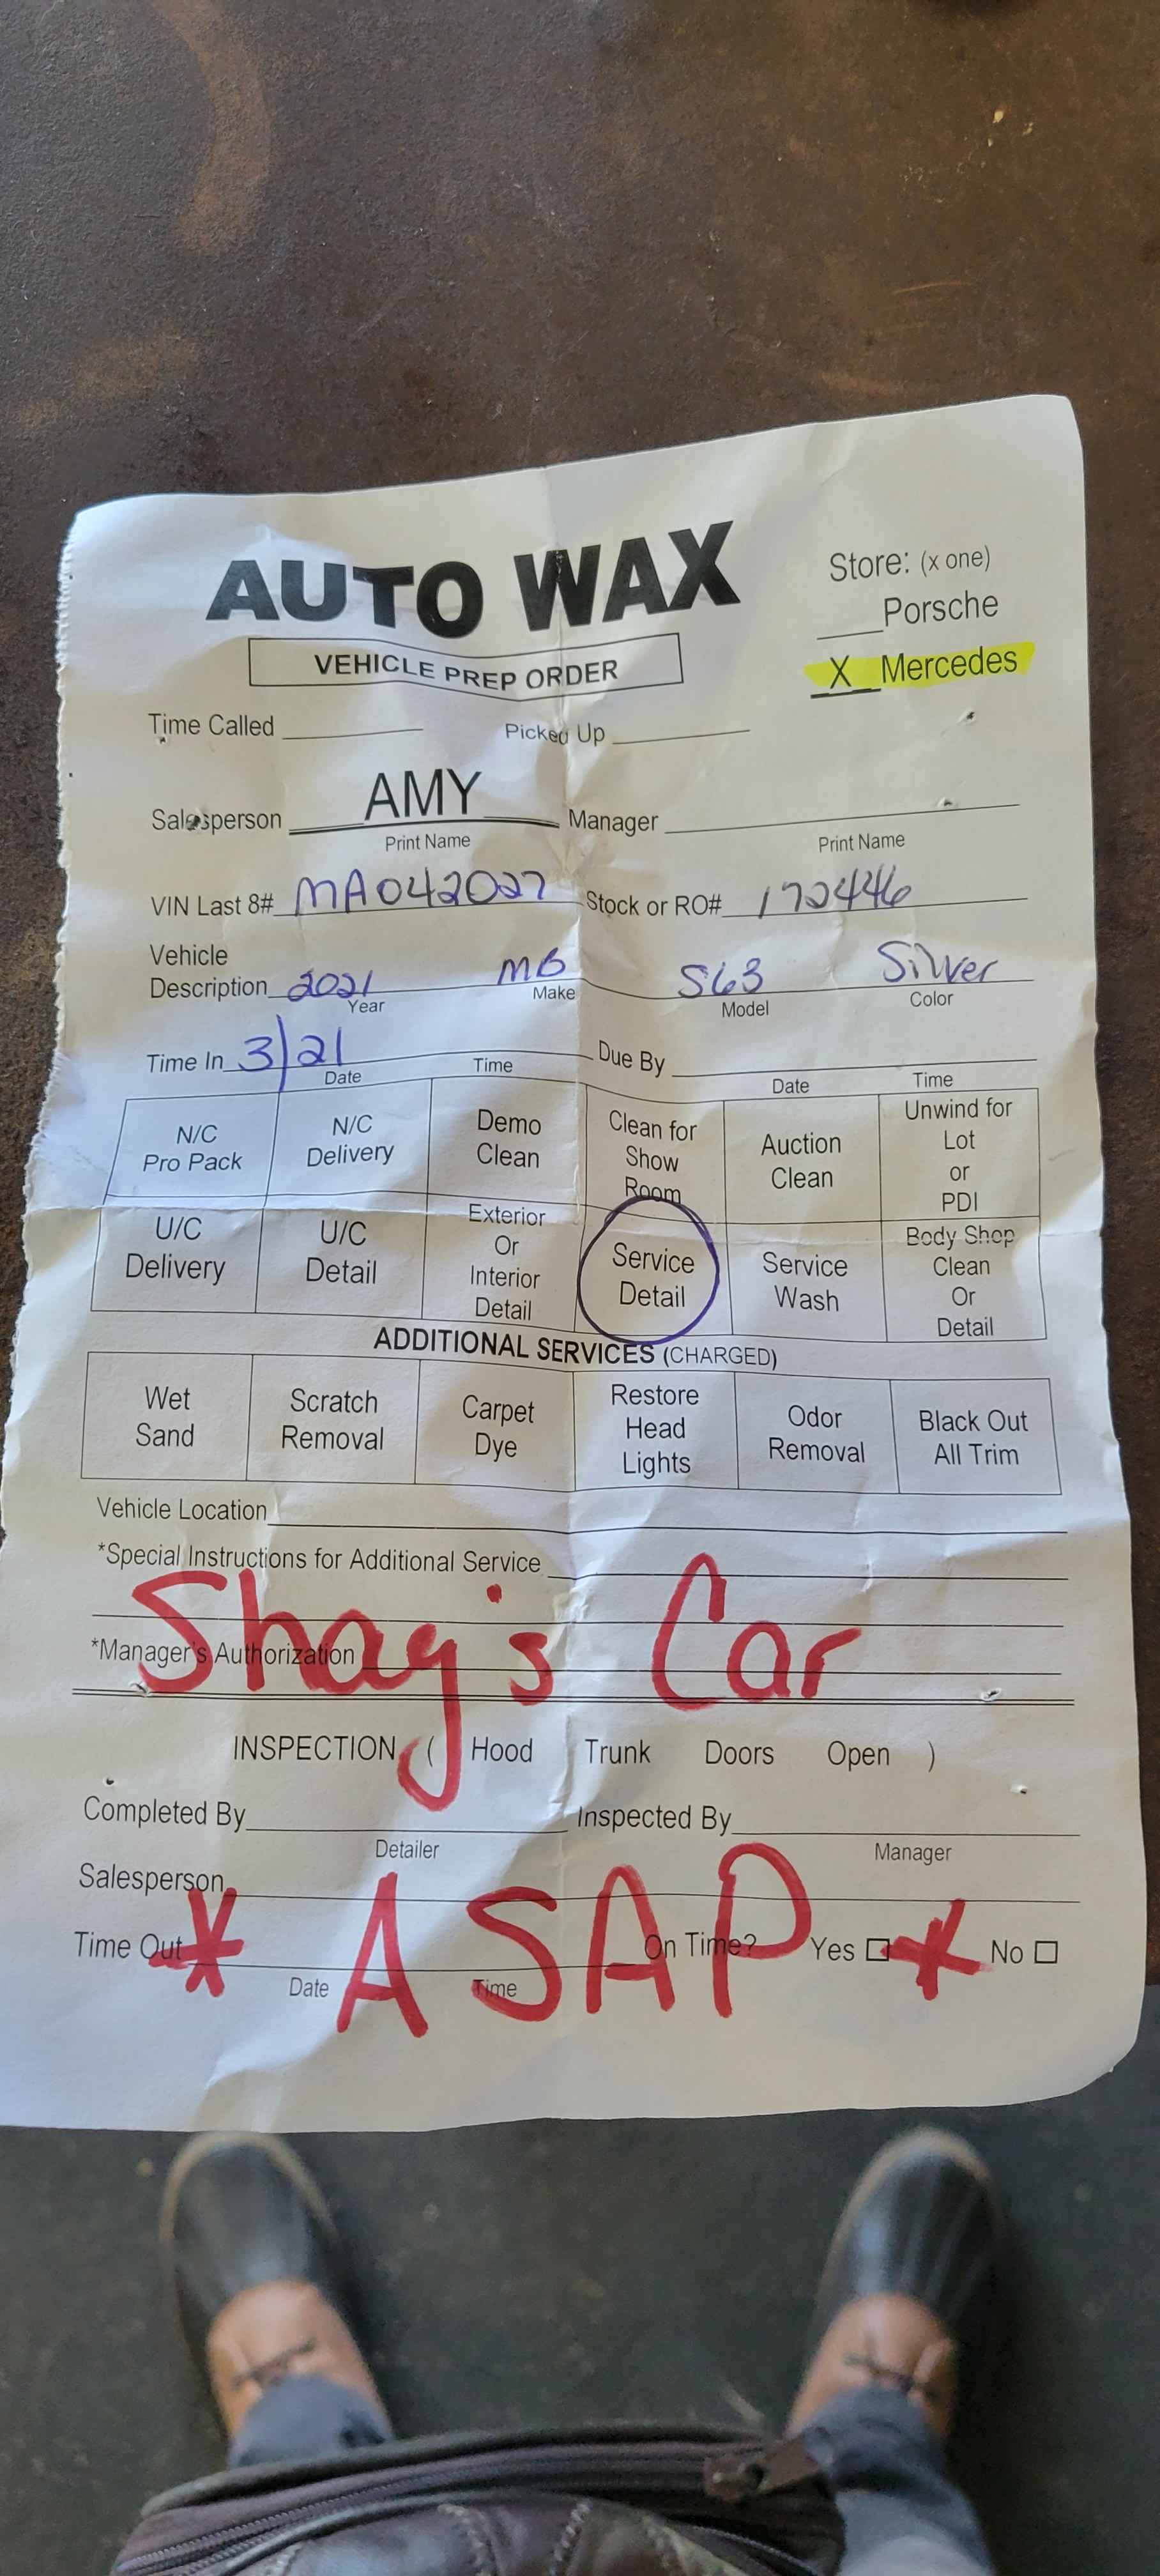 AUTO WAX
Store: (x one)
___Porsche
X Mercedes
VEHICLE PREP ORDER
Time Called Picked Up
Salesperson AMY Manager
Print Name Print Name
VIN Last 8# MA042027 Stock or RO# 172446
Vehicle
Description 2021 MB S63 Silver
Year Make Model Color
Time In 3/21 Due By
Date Time Date Time
N/C Pro Pack
N/C Delivery
Demo Clean
Clean for Show Room
Auction Clean
Unwind for Lot or PDI
U/C Delivery
U/C Detail
Exterior Or Interior Detail
Service Detail
Service Wash
Body Shop Clean Or Detail
ADDITIONAL SERVICES (CHARGED)
Wet Sand
Scratch Removal
Carpet Dye
Restore Head Lights
Odor Removal
Black Out All Trim
Vehicle Location
*Special Instructions for Additional Service
Shay's Car
*Manager's Authorization
INSPECTION ( Hood Trunk Doors Open )
Completed By Inspected By
Detailer Manager
Salesperson
* ASAP *
Time Out On Time? Yes ☐ No ☐
Date Time